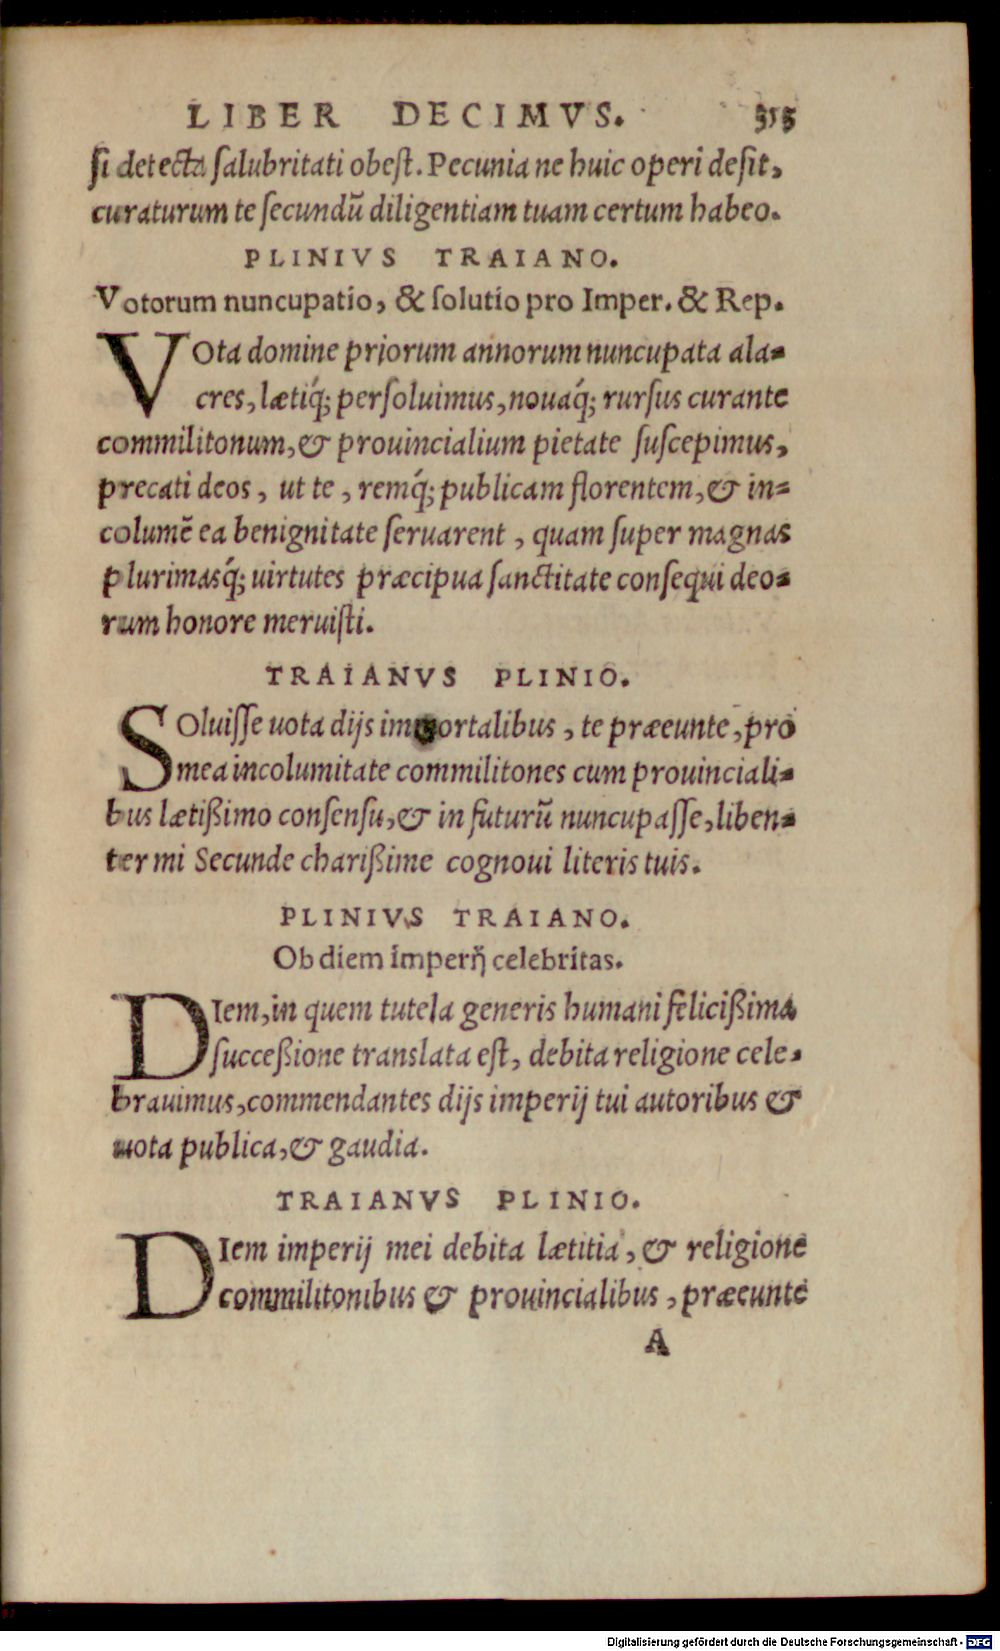 LIBER DECIMVS. 315
si detecta salubritati obest. Pecunia ne huic operi desit,
curaturum te secundũ diligentiam tuam certum habeo.
PLINIVS TRAIANO.
Votorum nuncupatio, & solutio pro Imper. & Rep.
VOta domine priorum annorum nuncupata ala-
cres, lætiq́; persoluimus, nouaq́; rursus curante
commilitonum, & prouincialium pietate suscepimus,
precati deos, ut te, remq́; publicam florentem, & in-
columẽ ea benignitate seruarent, quam super magnas
plurimasq́; uirtutes præcipua sanctitate consequi deo-
rum honore meruisti.
TRAIANVS PLINIO.
SOluisse uota dijs immortalibus, te præeunte, pro
mea incolumitate commilitones cum prouinciali-
bus lætißimo consensu, & in futurũ nuncupasse, liben-
ter mi Secunde charißime cognoui literis tuis.
PLINIVS TRAIANO.
Ob diem imperij celebritas.
DIem, in quem tutela generis humani felicißima
succeßione translata est, debita religione cele-
brauimus, commendantes dijs imperij tui autoribus &
uota publica, & gaudia.
TRAIANVS PLINIO.
DIem imperij mei debita lætitia, & religione
commilitonibus & prouincialibus, præeunte
A
Digitalisierung gefördert durch die Deutsche Forschungsgemeinschaft - DFG